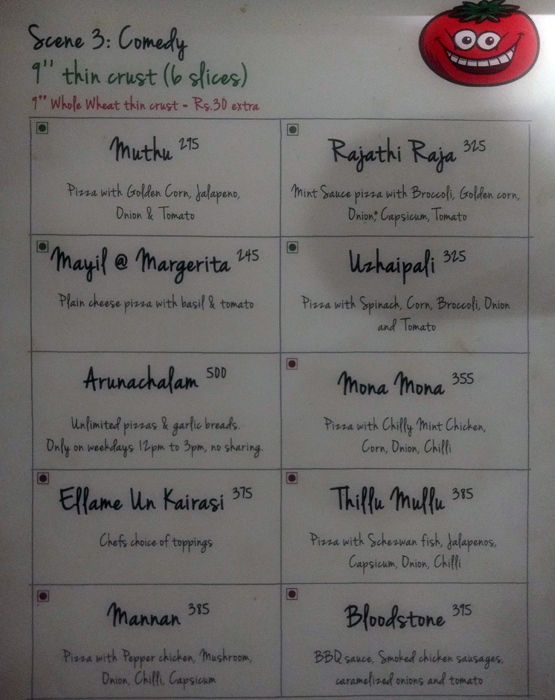 Scene 3: Comedy
9" thin crust (6 slices)
9" Whole Wheat thin crust - Rs.30 extra
Muthu 295
Pizza with Golden Corn, Jalapeno,
Onion & Tomato
Rajathi Raja 325
Mint Sauce pizza with Broccoli, Golden corn,
Onion, Capsicum, Tomato
Mayil @ Margerita 245
Plain cheese pizza with basil & tomato
Uzhaipali 325
Pizza with Spinach, Corn, Broccoli, Onion
and Tomato
Arunachalam 500
Unlimited pizzas & garlic breads.
Only on weekdays 12pm to 3pm, no sharing.
Mona Mona 355
Pizza with Chilly Mint Chicken,
Corn, Onion, Chilli
Ellame Un Kairasi 375
Chefs choice of toppings
Thillu Mullu 385
Pizza with Schezwan fish, Jalapenos,
Capsicum, Onion, Chilli
Mannan 385
Pizza with Pepper chicken, Mushroom,
Onion, Chilli, Capsicum
Bloodstone 395
BBQ sauce, Smoked chicken sausages,
caramelized onions and tomato